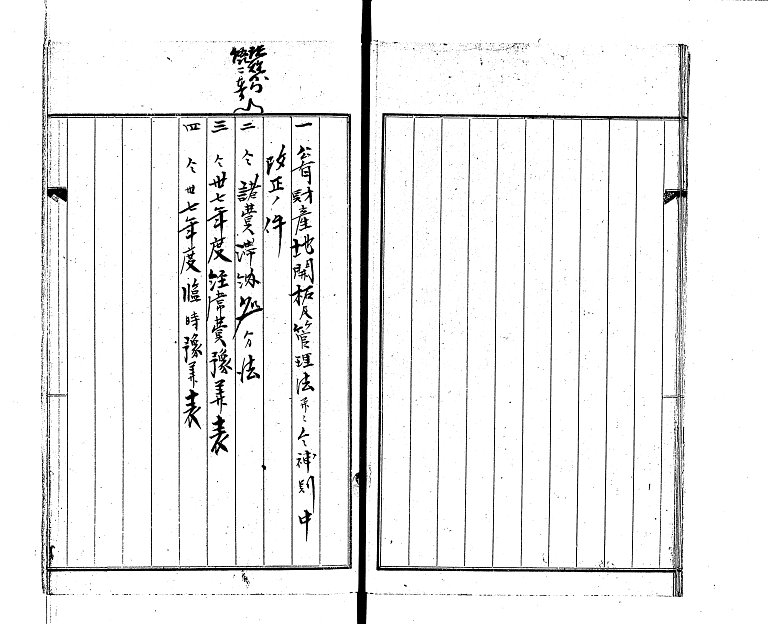 一 公有財産地開拓及管理法並ニ仝補則中
改正ノ件
二 仝 諸費滞納処分法
三 仝 卅七年度経常費豫算表
四 仝 卅七年度臨時豫算表